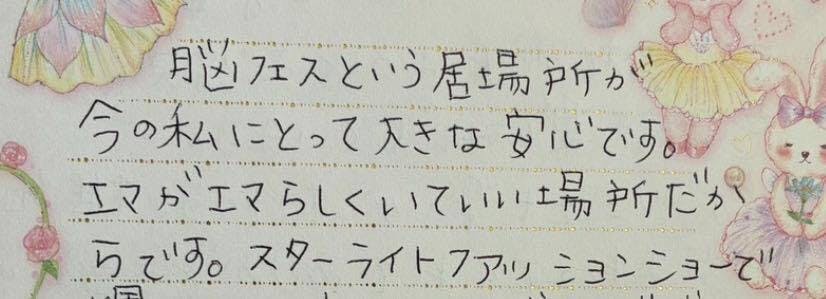 脳フェスという居場所が
今の私にとって大きな安心です。
エマがエマらしくいていい場所だか
らです。スターライトファッションショーで